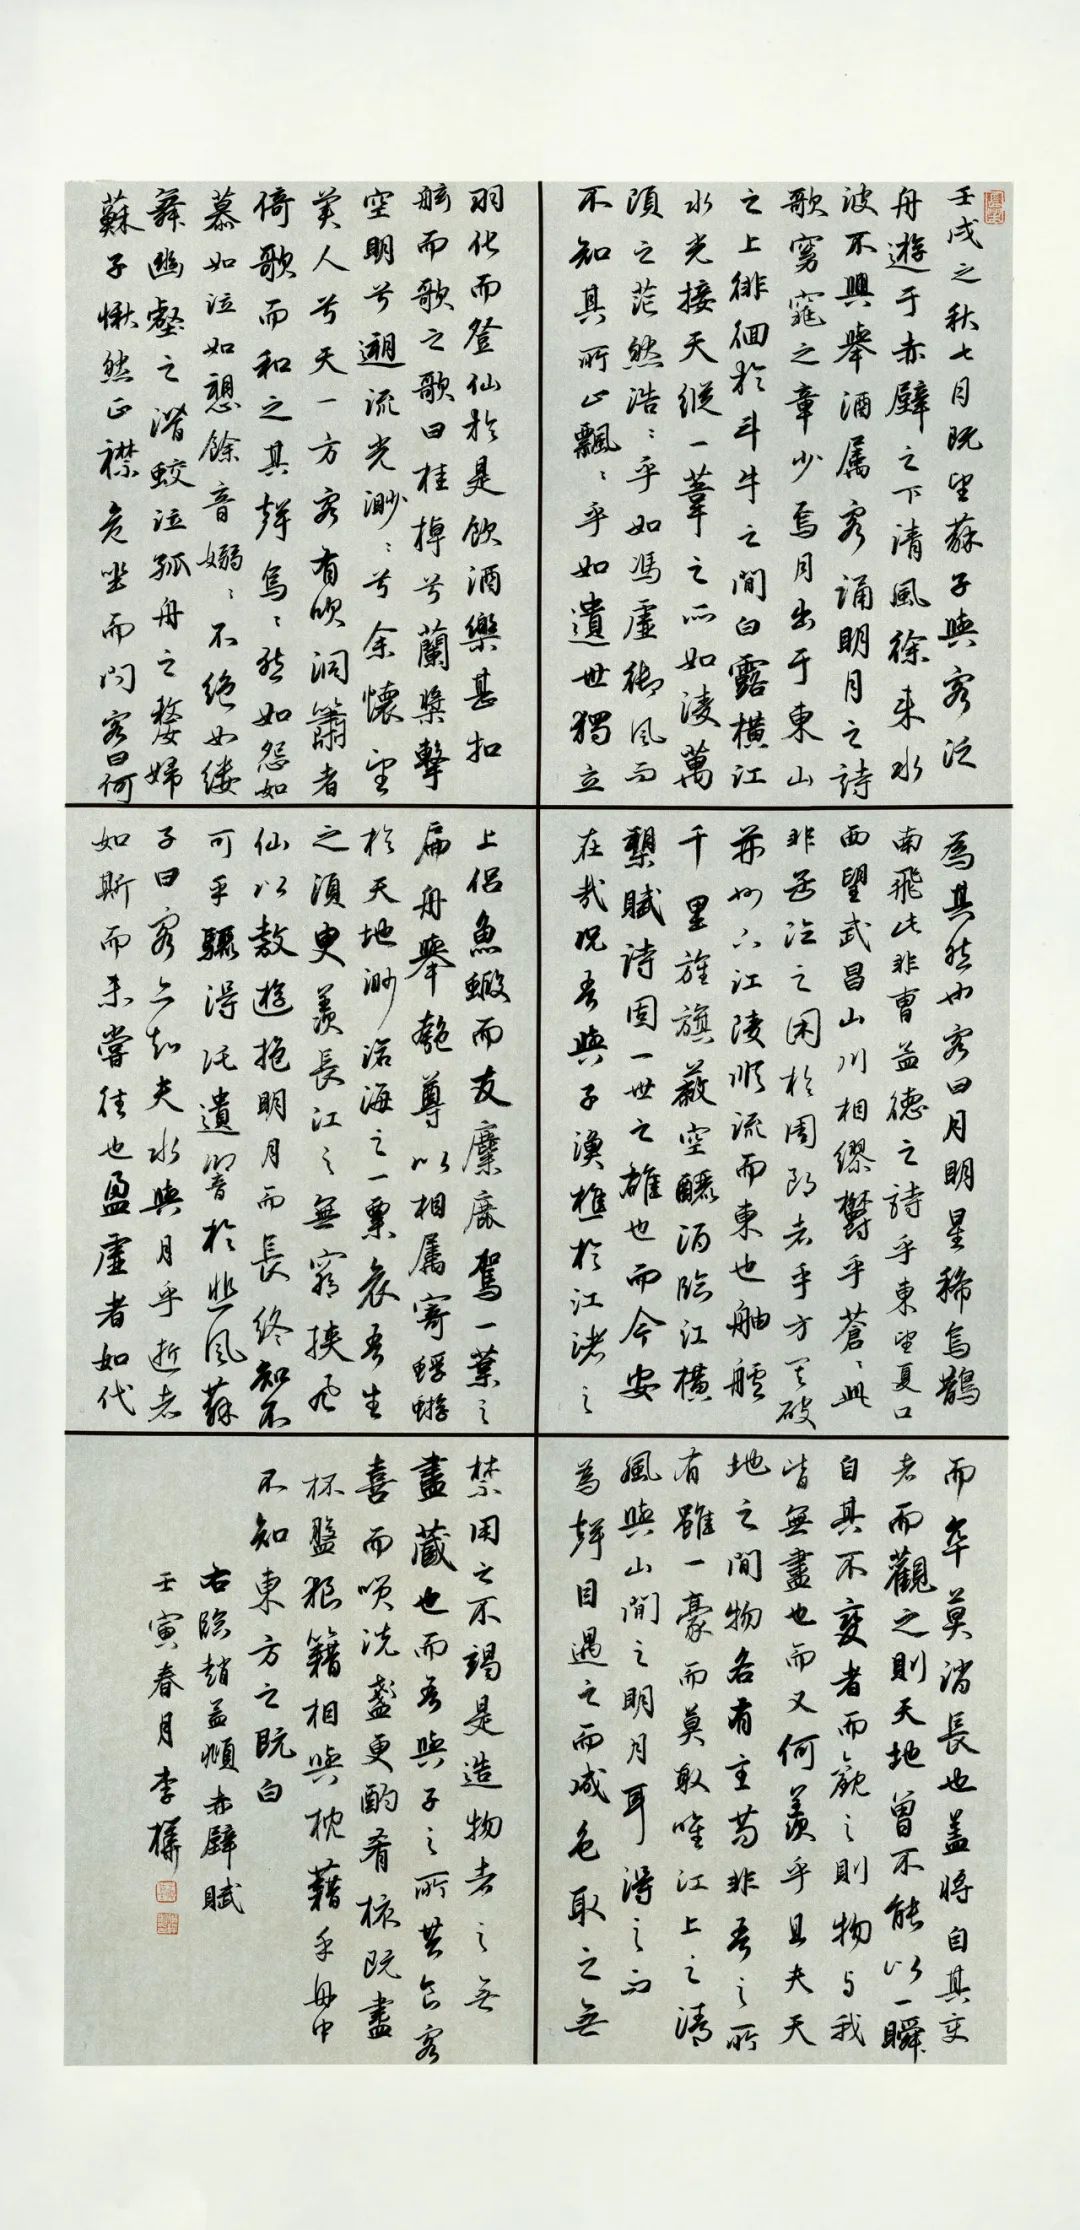 壬戌之秋七月既望蘇子與客泛
舟遊于赤壁之下清風徐來水
波不興舉酒属客誦明月之詩
歌窈窕之章少焉月出于東山
之上徘徊於斗牛之間白露橫江
水光接天縱一葦之所如淩萬
頃之茫然浩〻乎如馮虛御風而
不知其所止飄〻乎如遺世獨立
羽化而登仙於是飲酒樂甚扣
舷而歌之歌曰桂棹兮蘭槳擊
空明兮遡流光渺〻兮余懷望
美人兮天一方客有吹洞簫者
倚歌而和之其聲烏〻然如怨如
慕如泣如想餘音嫋〻不絕如縷
舞幽壑之潛蛟泣孤舟之嫠婦
蘇子愀然正襟危坐而問客曰何
為其然也客曰月明星稀烏鵲
南飛此非曹孟德之詩乎東望夏口
西望武昌山川相繆欝乎蒼〻此
非孟德之困於周郎者乎方其破
荊州下江陵順流而東也舳艫
千里旌旗蔽空釃酒臨江橫
槊賦詩固一世之雄也而今安
在哉況吾與子漁樵於江渚之
上侶魚蝦而友麋鹿駕一葉之
扁舟舉匏尊以相属寄蜉蝣
於天地渺滄海之一粟哀吾生
之須臾羨長江之無窮挾飛
仙以敖遊抱明月而長終知不
可乎驟得託遺響於悲風蘇
子曰客亦知夫水與月乎逝者
如斯而未嘗往也盈虛者如代
而卒莫消長也蓋將自其变
者而觀之則天地曾不能以一瞬
自其不變者而觀之則物与我
皆無盡也而又何羨乎且夫天
地之間物各有主苟非吾之所
有雖一豪而莫取唯江上之清
風與山間之明月耳得之而
為聲目遇之而成色取之無
禁用之不竭是造物者之無
盡藏也而吾與子之所共食客
喜而笑洗盞更酌肴核既盡
杯盤狼籍相與枕藉乎舟中
不知東方之既白
右臨趙孟頫赤壁賦
壬寅春月李